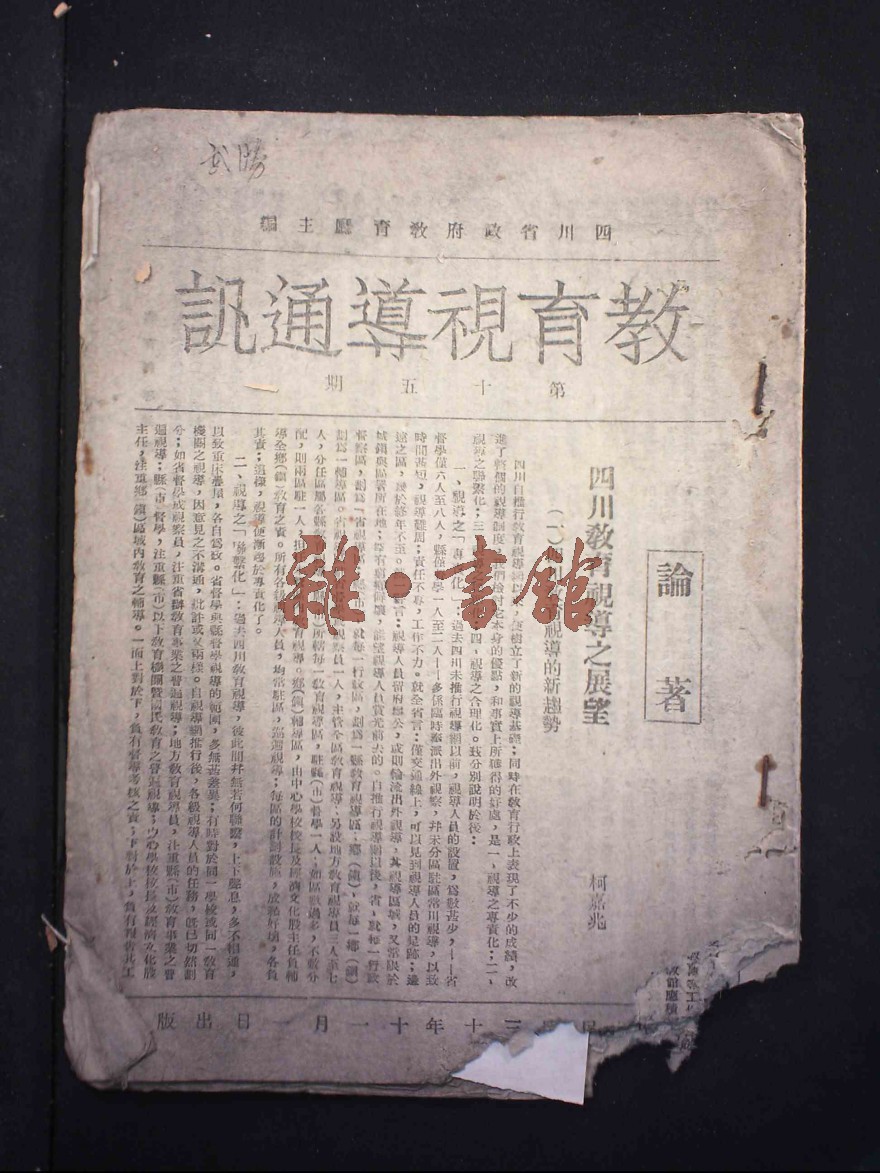 武勝
四川省政府教育廳主編
教育視導通訊
第十五期
論著
四川教育視導之展望
柯嘉兆
視導的新趨勢
四川自推行教育視導網以來,樹立了新的視導基礎;同時在教育行政上表現了不少的成績,改
進了整個的視導制度。我們檢討它本身的優點,和事實上所獲得的好處,是一、視導之專責化;二、
視導之聯繫化;三、四、視導之合理化。茲分別說明於後:
一、視導之「專責化」:過去四川未推行視導網以前,視導人員的設置,為數甚少,——省
督學僅六人至八人,縣僅督學一人至二人——多係臨時派出外視察,并未分區駐區常川視導,以致
時間甚短,視導難周;責任不專,工作不力。就全省言:僅交通線上,可以見到視導人員的足跡;邊
遠之區,幾於終年不至。就言:視導人員留府辦公,或則輪流出外視導,其視導區域,又常限於
城鎮與區署所在地;窮鄉僻壤,誰望視導人員賁光前去的。自推行視導網以後,省,就每一行政
督察區,劃為「省視導區;縣(市)就每一行政區,劃為一縣教育視導區;鄉(鎮),就每一鄉(鎮)
劃為一輔導區。省視導區,視察員一人,主管全區教育視導,另設地方教育視導員三人至七
人,分任區屬各縣(市)所轄每一教育視導區,駐縣(市)督學一人;如區數過多,不敷分
配,則兩區駐一人,教育視導。鄉(鎮)輔導區,由中心學校校長及經濟文化股主任負輔
導全鄉(鎮)教育之責。所有各級視導人員,均常駐區,巡迴視導;每區的計劃設施,成績好壞,各負
其責;這樣,視導便漸趨於專責化了。
二、視導之「聯繫化」:過去四川教育視導,彼此間并無若何聯繫,上下懸息,多不相通,
以致重床疊屋,各自為政。省督學與縣督學視導的範圍,多無甚差異;有時對於同一學校或同一教育
機關之視導,因意見之不溝通,批評或又兩樣。自視導網推行後,各級視導人員的任務,既已切然劃
分;如省督學或視察員,注重省辦教育事業之普遍視導;地方教育視導員,注重縣(市)教育事業之普
遍視導;縣(市)督學,注重縣(市)以下教育機關暨國民教育之普遍視導;中心學校校長及經濟文化股
主任,注重鄉(鎮)區域內教育之輔導。一面上對於下,負有督導考核之責;下對於上,負有報告其工
三十年十一月一日出版
雜·書館